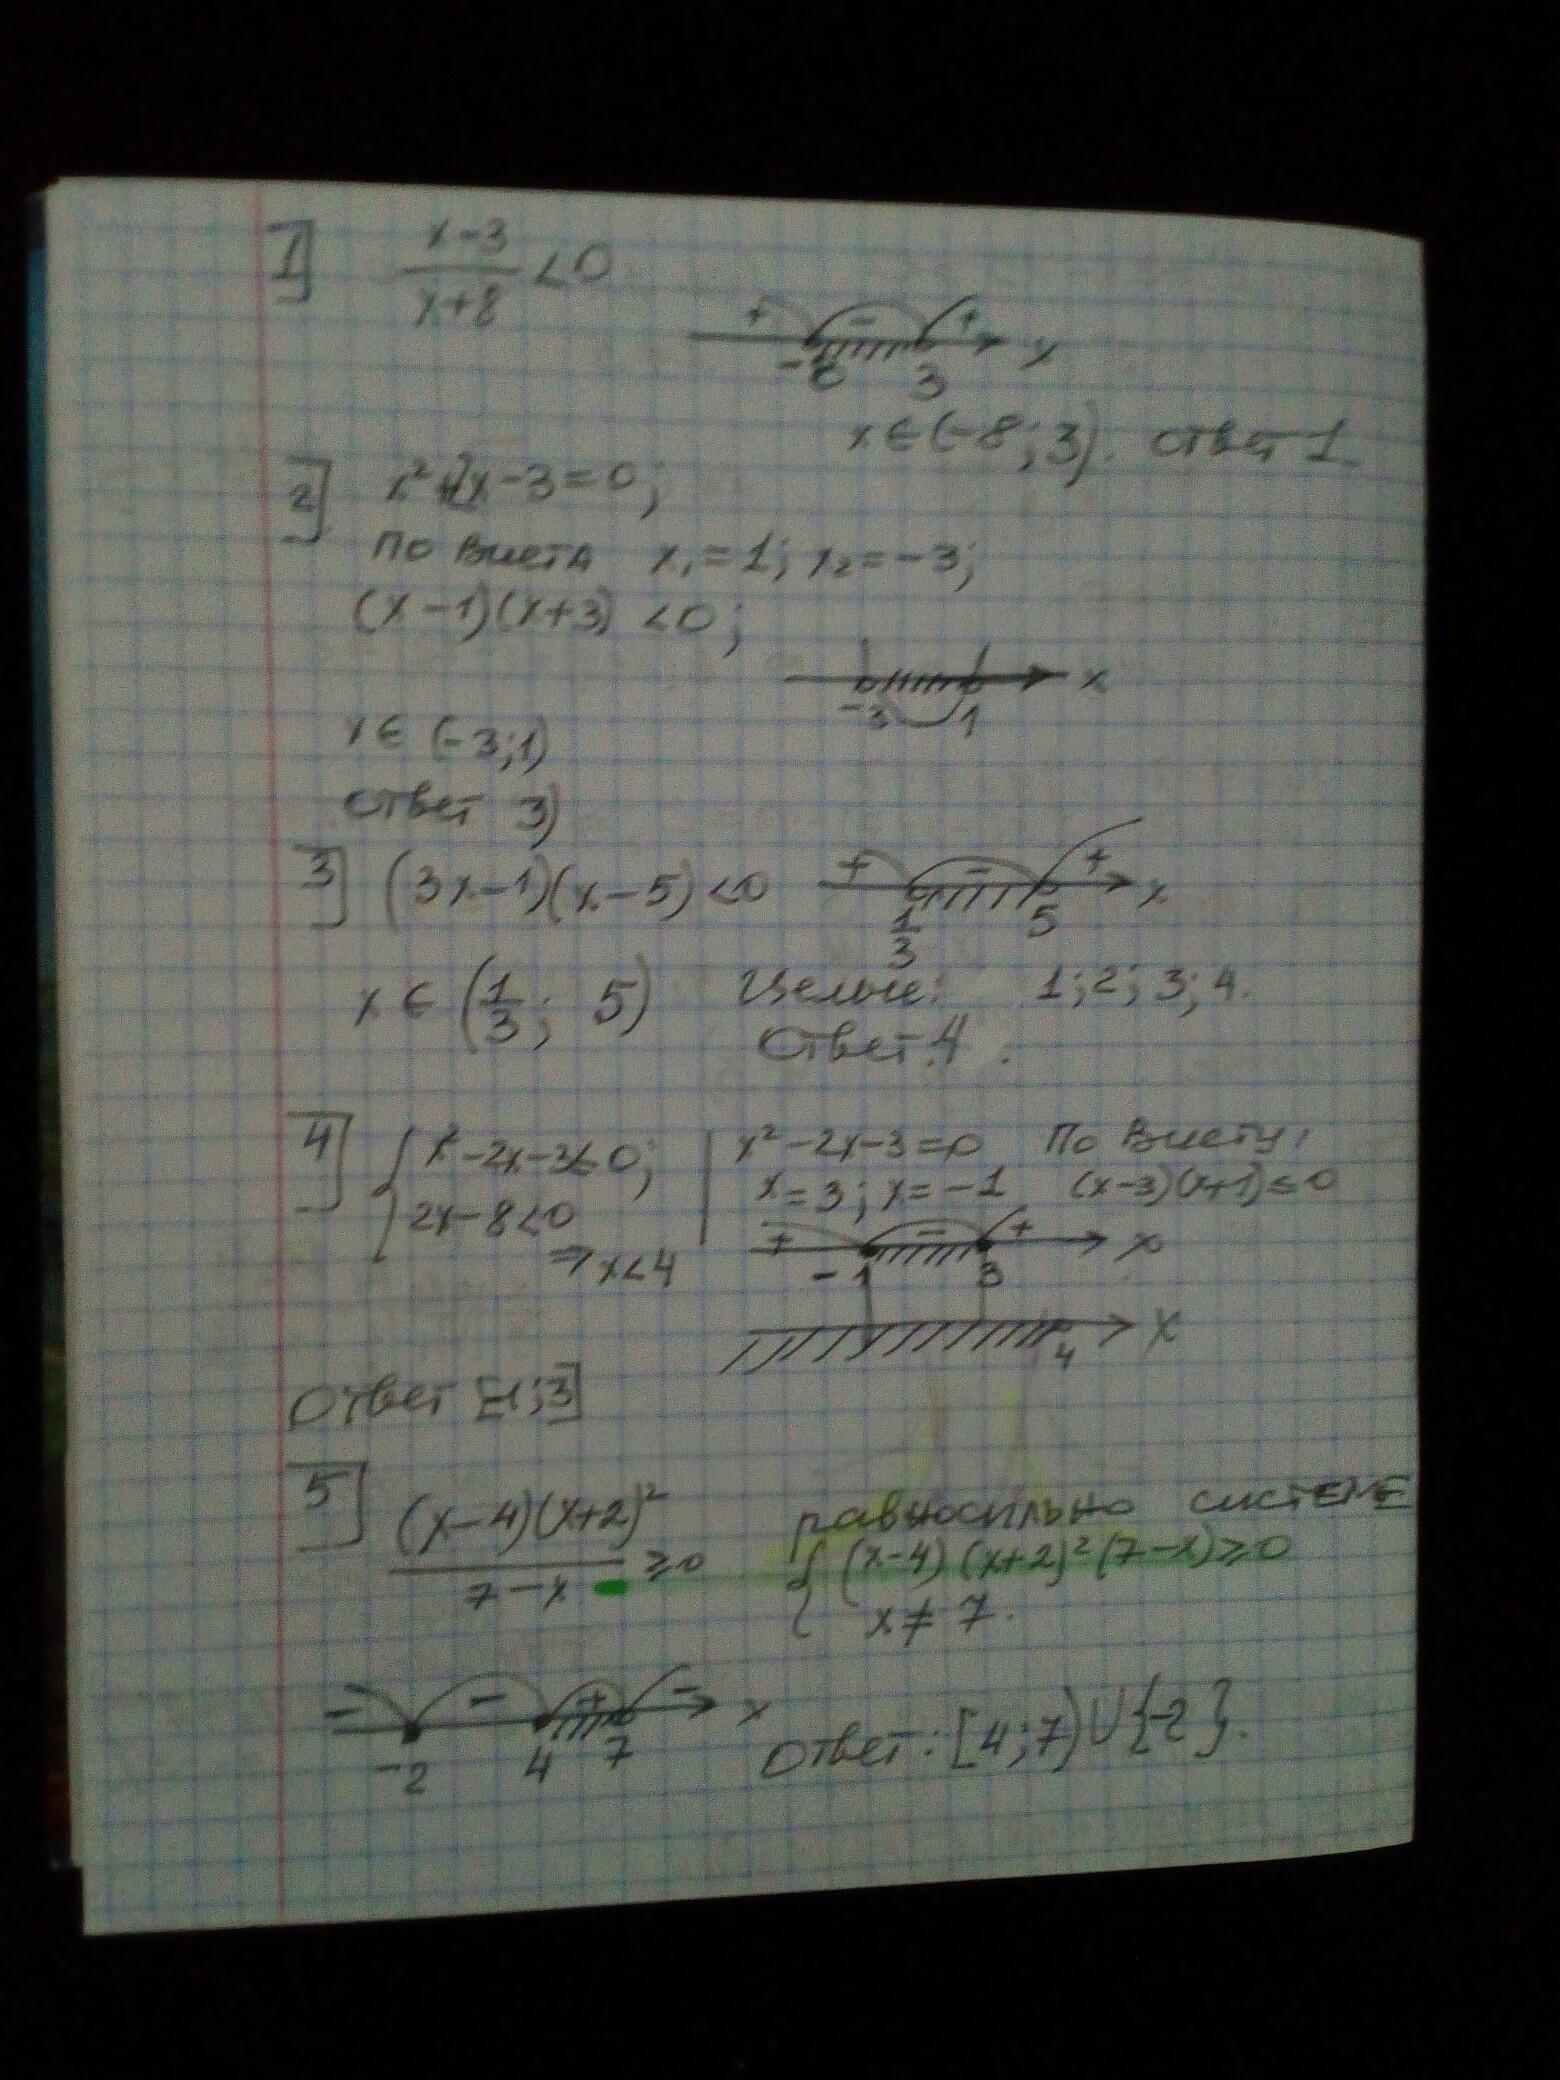 1] (x-3)/(x+8) <0
+ - + x
-8 3
x∈(-8;3). Ответ 1
2] x²+2x-3=0;
По Виета x₁=1; x₂=-3;
(x-1)(x+3) <0;
x
-3 1
x∈ (-3;1)
Ответ 3)
3] (3x-1)(x-5)<0
+ - + x
1/3 5
x∈(1/3; 5) Целые: 1;2;3;4.
Ответ 4.
4] { x²-2x-3≤0; | x²-2x-3=0 По Виету:
2x-8<0 x=3; x=-1 (x-3)(x+1)≤0
⇒x<4
+ - + x
-1 3
x
4
Ответ [-1;3]
5] (x-4)(x+2)²/(7-x) ≥0 равносильно системе
{ (x-4)(x+2)²(7-x)≥0
x≠7.
- - + - x
-2 4 7
Ответ: [4;7)∪{-2}.